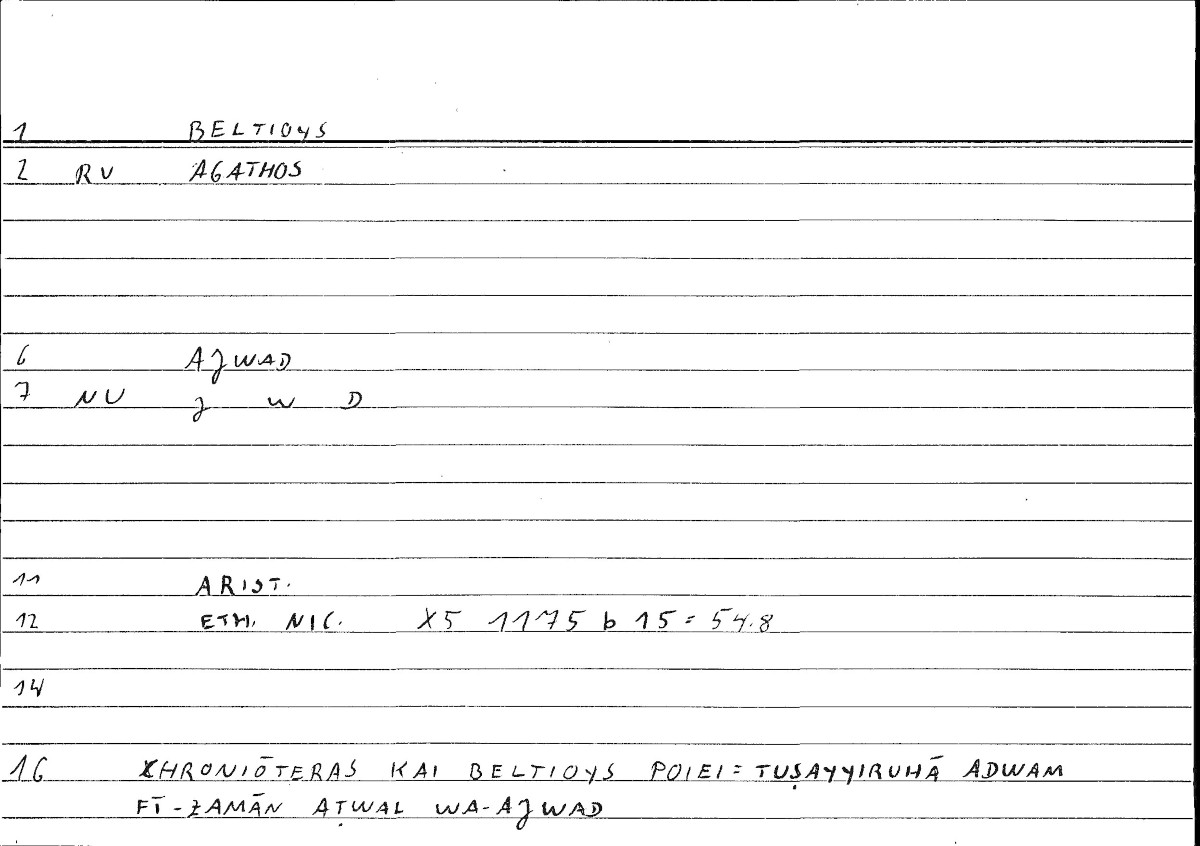 1 BELTIOYS
2 RV AGATHOS
6 AJWAD
7 NV J W D
11 ARIST.
12 ETH. NIC. X5 1175 b 15 = 54.8
14
16 XHRONIŌTERAS KAI BELTIOYS POIEI = TUṢAYYIRUHĀ ADWAM
FĪ-ZAMĀN AṬWAL WA-AJWAD